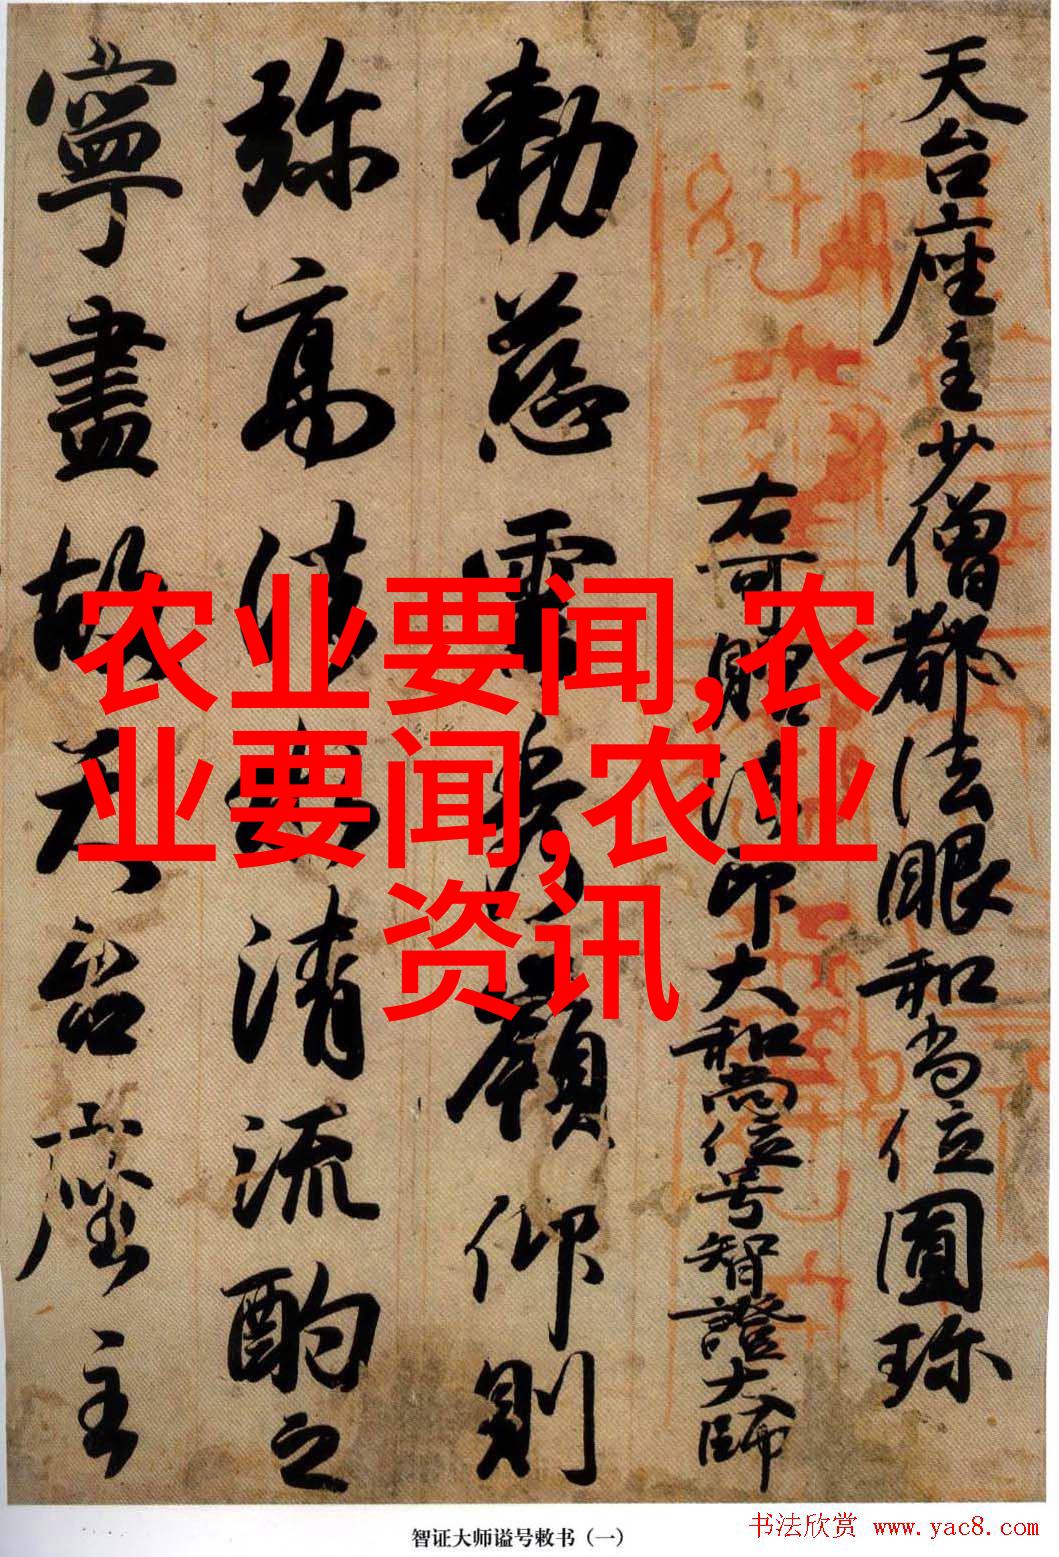 天台座主少僧都法眼和尚位圓珎
右可贈法印大和尚位号智證大師
勅慈雲秀嶺仰則
弥高清流酌之
寧盡故天台座主
农业要闻,农
业要闻,农业
资讯
智证大师谥号敕书（一）
书法欣赏 www.yac8.com